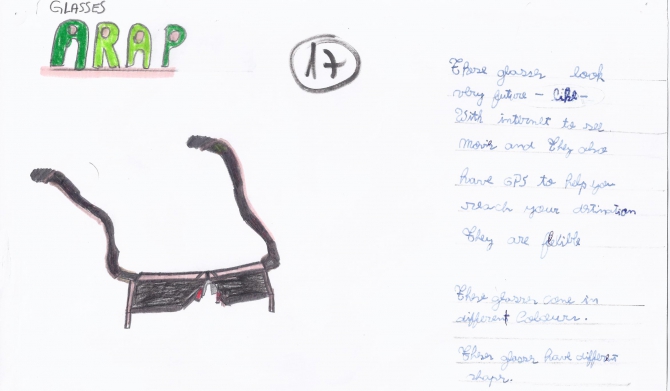 GLASSES
ARAP
17
These glasses look
very future - like -
With internet to see
movis and They also
have GPS to help you
reach your distination
They are flxible
These glasses come in
different Colours.
These glasses have different
shape.